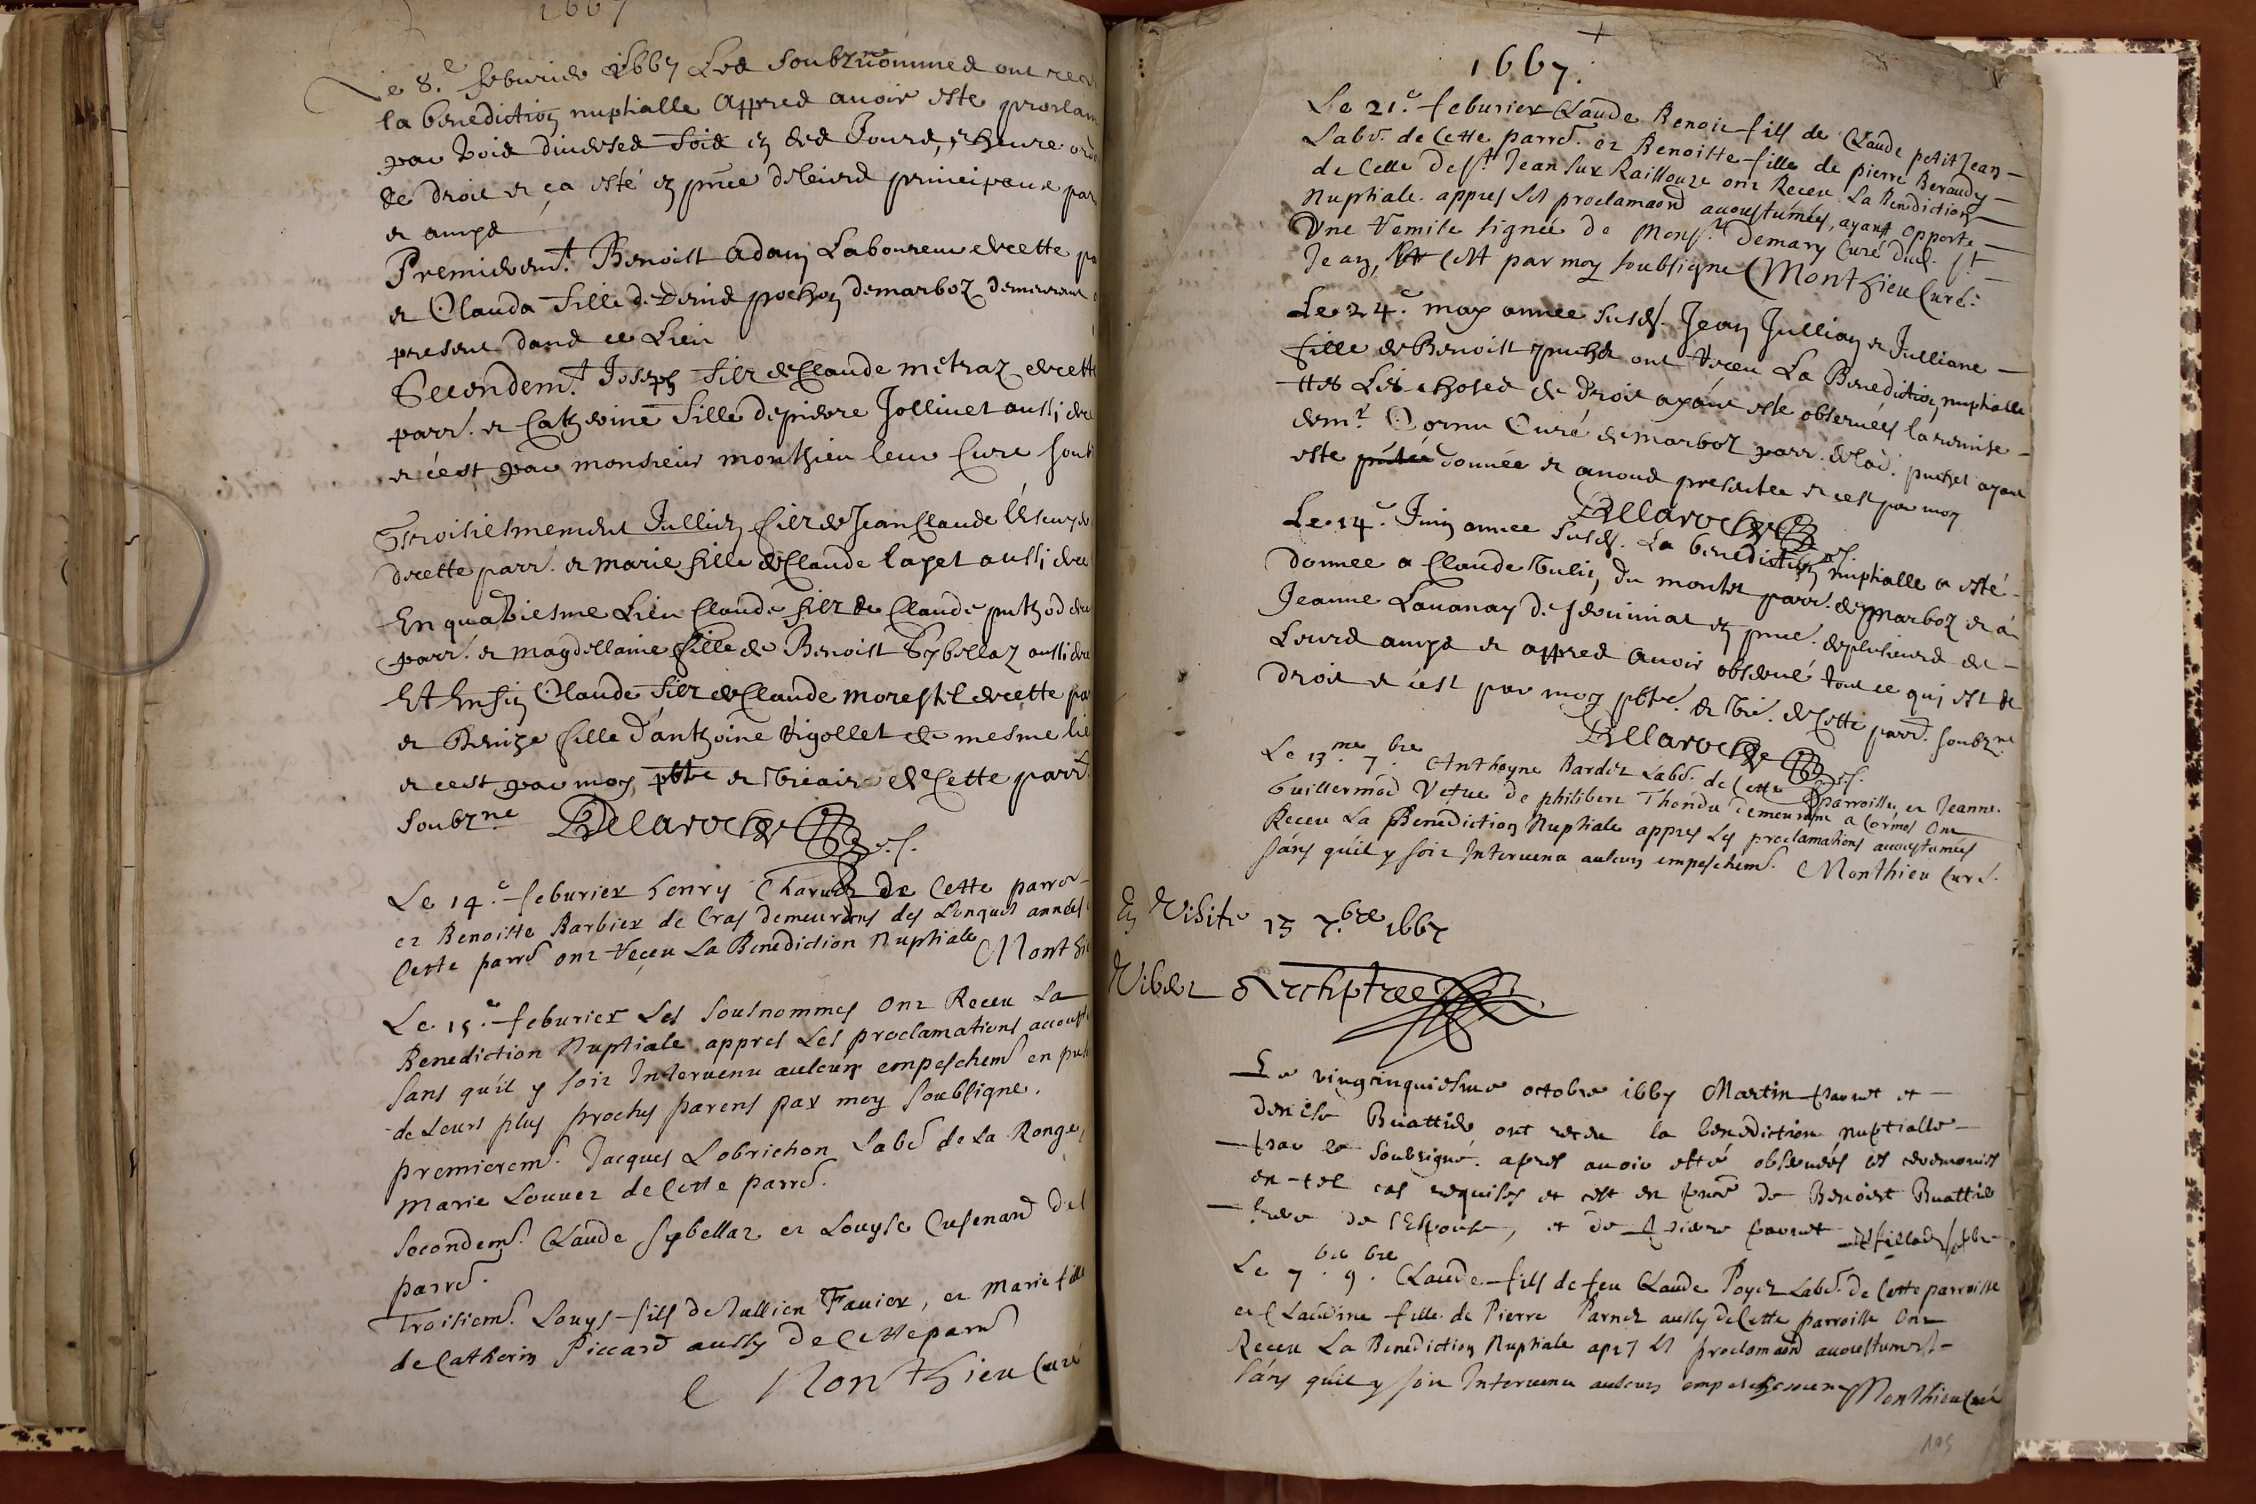 1667
Le 8.e feburier 1667 Les soubznommes ont rec
la benediction nuptialle Appres auoir este proclam
par trois diuerses fois es des Jours, et heure
de droit et ça esté en pnce de leurs principaux par
et amys
Premierem.t Benoist Adam Laboureur de cette p
et Clauda fille de Denis pochon de marboz demeurant
present dans ce Lieu
Secondem.t Joseph filz de Claude metraz de cette
parr. et Catherine fille de pierre Jollivet aussi de
et c'est par monsieur monthieu leur Curé soub
Troisiesmement Jullien filz de Jean Claude
de cette parr. et marie fille de Claude layet aussi de
En quatriesme Lieu Claude filz de Claude puthod de
parr. et magdellaine fille de Benoist Sybellaz aussi de
Et Enfin Claude filz de Claude morestel de cette pa
et Denize fille d'anthoine Vigollet de mesme lie
et cest par moy pbtre et Vicaire de Cette parr.
soubzne Delaroche
Le 14.e feburier henry de Cette parro
et Benoitte Barbier de Cras demeurans des Longues années
Cette parr ont reçeu La Benediction Nuptiale Monthi
Le 15.e feburier Les sousnommes Ont Receu La
Benediction Nuptiale appres Les proclamations accoust
sans qu'il y soit Interuenu aulcun empeschem en pres
de Leurs plus proches parens par moy soubsigne.
premierem. Jacques Lobrichon Lab de La Ronge
Marie Louuez de Cette parr.
secondem. Claude sybellaz et Louyse Cusenard de
parr.
Troisiem. Louys fils de Jullien Fauier, et Marie fille
de Catherin Piccard aussy de Cette parr
Monthieu Curé
1667.
Le 21.e feburier Claude Benoit fils de Claude petitJean
Labr. de Cette parr. et Benoitte fille de pierre Beraudy
de Celle de st. Jean sur Raissouze ont Receu La Benediction
Nuptiale appres Les proclamaons accoustumées, ayant apporté
Vne remise signée de Monsr. Demary Curé dud. st.
Jean, Et Cest par moy soubsigne Monthieu Curé.
Le 24.e may annee susd. Jean Jullian et Julliane
fille de Benoist puthet ont reçeu La Benediction nuptialle
ttes Les choses de droit ayant esté obseruées la remise
de mr. Cornu Curé de marboz parr. de lad. puthet ayant
este donnée et a nous presentee et cest par moy
Delaroche
Le 14.e Juin annee susd. La benediction nuptialle a esté
donnee a Claude Tulin du parr. de marboz et a
Jeanne Lauanay de en pnce. de plusieurs de
Leurs amys et appres auoir obserué tout ce qui est de
droit et c'est par moy pbtre. et Vic. de Cette parr. soubzne
Delaroche
Le 13.me 7.bre Anthoyne Bardet Labr. de Cette parroisse et Jeanne
Guillermod Vefue de philibert Thondu demeurant a Cormos Ont
Receu La Benediction Nuptiale appres Les proclamations accoustumées
sans qu'il y soit Interuenu aulcun empeschem. Monthieu Curé.
En Visite 13 7.bre 1667
Archptre
Le vingcinquiesme octobre 1667 Martin et
denise Buattier ont receu la benediction nuptialle
par le soubsigné. apres auoir esté obserués les ceremonies
en tel cas requises et cest en pnce de Benoist Buattie
frere de l'Espouse, et de
Le 7. bre 9. bre Claude fils de feu Claude Poyet Labr. de Cette parroisse
et Claudine fille de Pierre Parnet aussy de Cette parroisse Ont
Receu La Benediction Nuptiale apres Les proclamaons accoustumées
sans qu'il y soit Interuenu aulcun empeschement Monthieu Curé
105